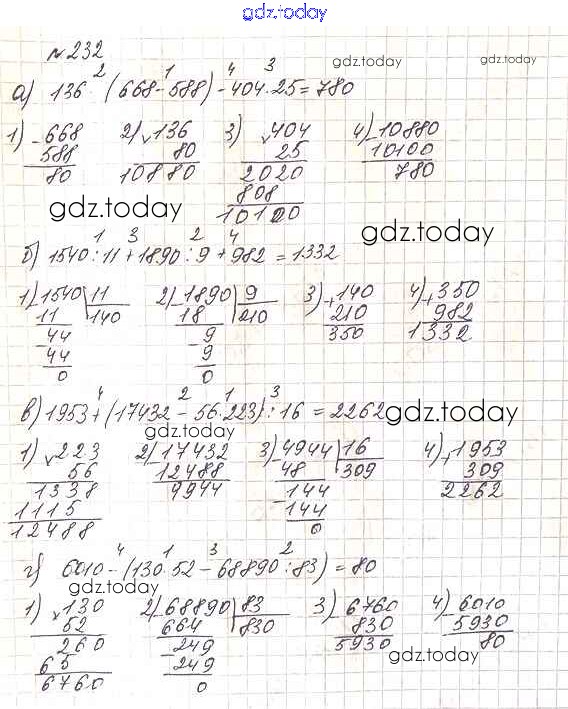 gdz.today
№232
gdz.today gdz.today
а) 136 · (668-588) - 404·25 = 780
2 1 4 3
1) -668 2) ×136 3) ×404 4) -10880
588 80 25 10100
80 10880 2020 780
808
10100
gdz.today gdz.today
1 3 2 4
б) 1540:11+1890:9+982=1332
1) -1540 | 11 2) -1890 | 9 3) +140 4) +350
11 140 18 210 210 982
-44 -9 350 1332
44 9
0 0
4 2 1 3
в) 1953+(17432-56·223):16=2262
gdz.today gdz.today
1) ×223 2) -17432 3) -4944 | 16 4) +1953
56 12488 48 309 309
1338 9944 -144 2262
1115 144
12488 0
4 1 3 2
г) 6010-(130·52-68890:83)=80
gdz.today
1) ×130 2) -68890 | 83 3) -6760 4) -6010
52 664 830 830 5930
260 -249 5930 80
65 249
6760 0
gdz.today